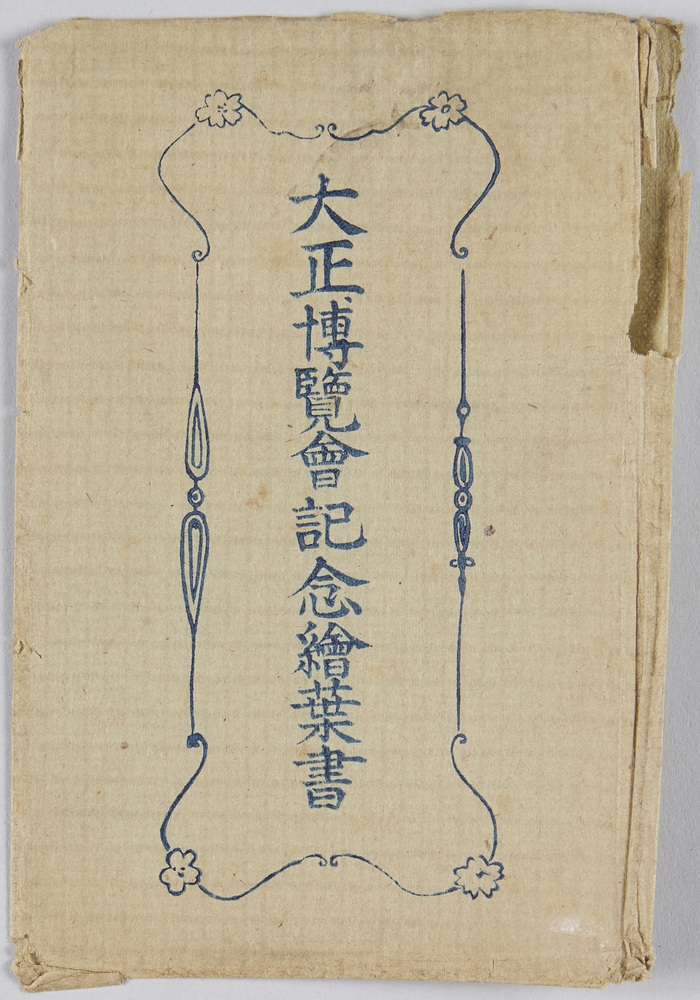 大正博覽會記念繪葉書